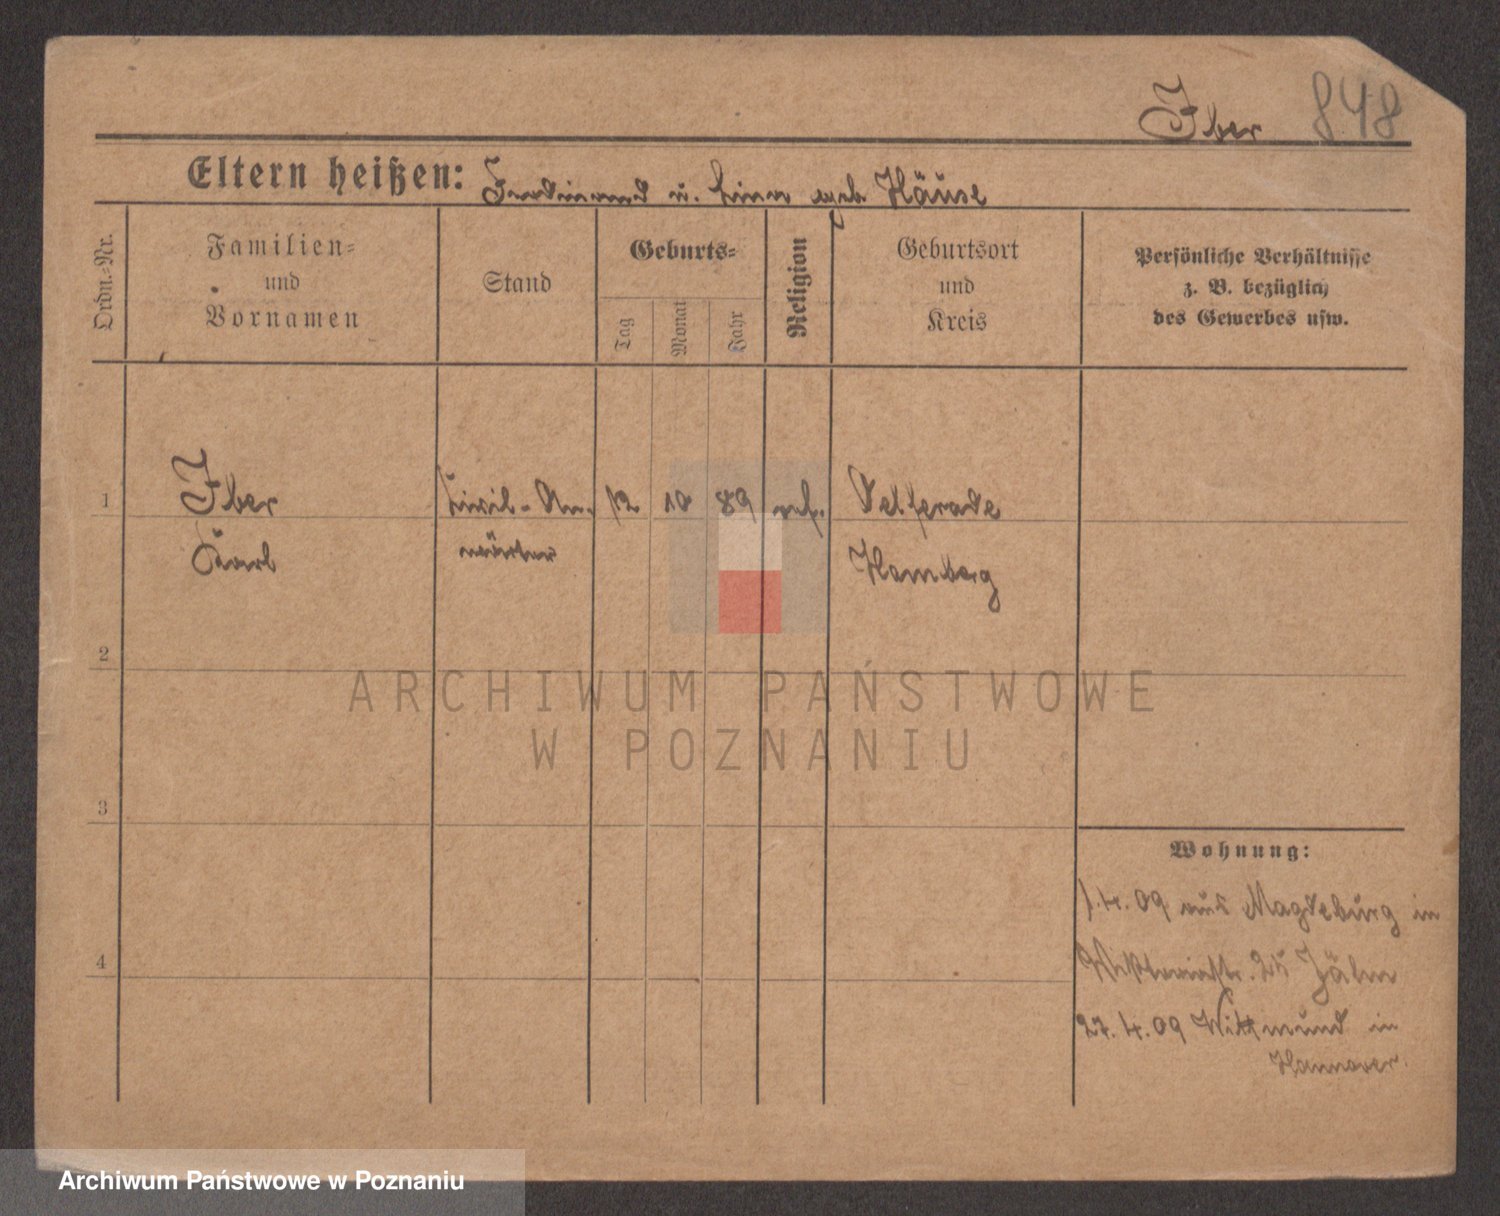 Iber 848
Eltern heißen: Ferdinand u. Lina geb. Häuse
Ordn.-Nr.
Familien-
und
Vornamen
Stand
Geburts-
Tag
Monat
Jahr
Religion
Geburtsort
und
Kreis
Persönliche Verhältnisse
z. B. bezüglich
des Gewerbes usw.
1
Iber
Karl
Zivil-An-
wärter
12 10 89
Hamburg
2
ARCHIWUM PAŃSTWOWE
W POZNANIU
3
4
Wohnung:
1.4.09 aus Magdeburg in
25
27.4.09 Wittmund in
Hannover.
Archiwum Państwowe w Poznaniu